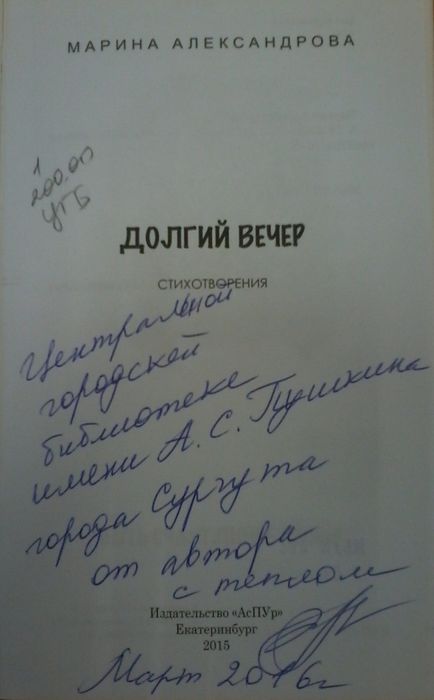 МАРИНА АЛЕКСАНДРОВА
1
200.00
ЦГБ
ДОЛГИЙ ВЕЧЕР
СТИХОТВОРЕНИЯ
Центральной
городской
библиотеке
имени А. С. Пушкина
города Сургута
от автора
с теплом
Издательство «АсПУр»
Екатеринбург
2015
Март 2016г